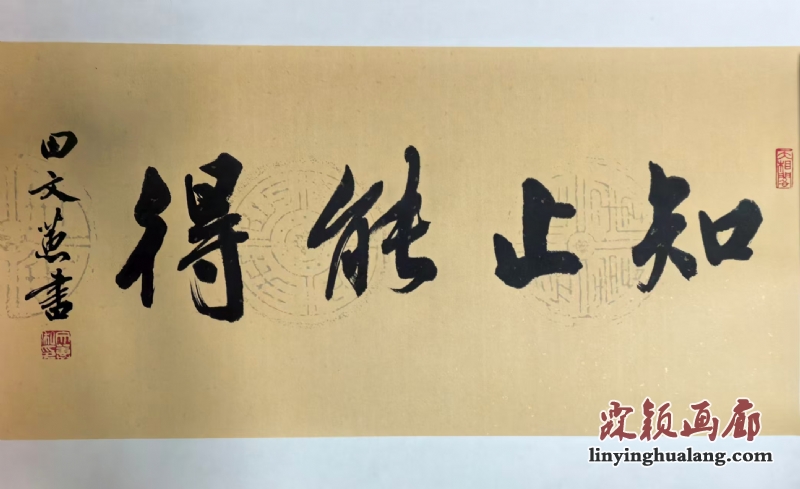 天相閣
知止能得
田文 书
霖颖画廊
linyinghualang.com